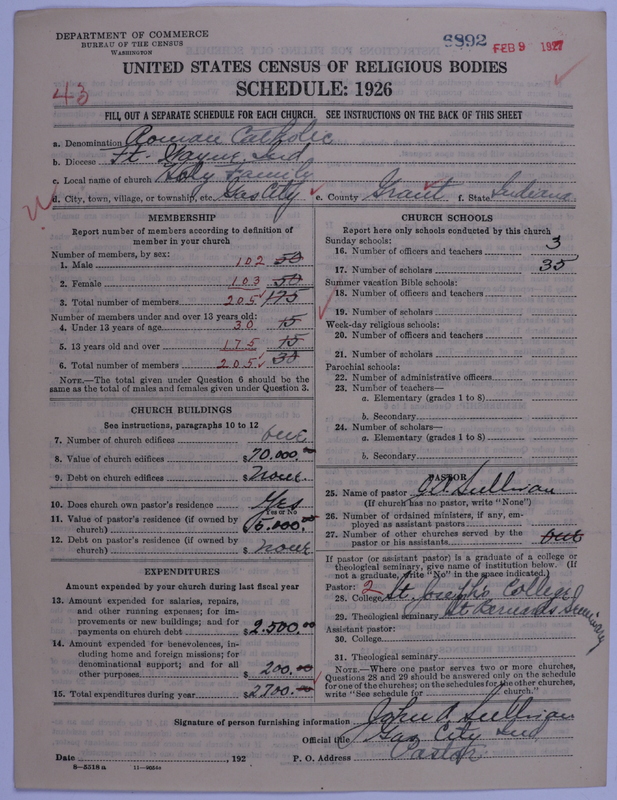 DEPARTMENT OF COMMERCE
BUREAU OF THE CENSUS
WASHINGTON
6892 FEB 9 1927
UNITED STATES CENSUS OF RELIGIOUS BODIES
43
SCHEDULE: 1926
FILL OUT A SEPARATE SCHEDULE FOR EACH CHURCH. SEE INSTRUCTIONS ON THE BACK OF THIS SHEET
a. Denomination Roman Catholic
b. Diocese Ft. Wayne, Ind
c. Local name of church Holy Family
d. City, town, village, or township, etc. Gas City e. County Grant f. State Indiana
MEMBERSHIP
Report number of members according to definition of
member in your church
Number of members, by sex:
1. Male 102 50
2. Female 103 50
3. Total number of members 205 175
Number of members under and over 13 years old:
4. Under 13 years of age 30 15
5. 13 years old and over 175 15
6. Total number of members 205 30
NOTE.—The total given under Question 6 should be
same as the total of males and females given under Question 3.
CHURCH BUILDINGS
See instructions, paragraphs 10 to 12
7. Number of church edifices one
8. Value of church edifices $70,000.00
9. Debt on church edifices $ none
10. Does church own pastor's residence Yes
Yes or No
11. Value of pastor's residence (if owned by
church) $6,000.00
12. Debt on pastor's residence (if owned by
church) $ none
EXPENDITURES
Amount expended by your church during last fiscal year
13. Amount expended for salaries, repairs,
and other running expenses; for im-
provements or new buildings; and for
payments on church debt $2,500.00
14. Amount expended for benevolences, in-
cluding home and foreign missions; for
denominational support; and for all
other purposes $ 200.00
15. Total expenditures during year $2700.00
CHURCH SCHOOLS
Report here only schools conducted by this church
Sunday schools:
16. Number of officers and teachers 3
17. Number of scholars 35
Summer vacation Bible schools:
18. Number of officers and teachers
19. Number of scholars
Week-day religious schools:
20. Number of officers and teachers
21. Number of scholars
Parochial schools:
22. Number of administrative officers
23. Number of teachers—
a. Elementary (grades 1 to 8)
b. Secondary
24. Number of scholars—
a. Elementary (grades 1 to 8)
b. Secondary
PASTOR
25. Name of pastor Sullivan
(If church has no pastor, write "None")
26. Number of ordained ministers, if any, em-
ployed as assistant pastors
27. Number of other churches served by the
pastor or his assistants
If pastor (or assistant pastor) is a graduate of a college or
theological seminary, give name of institution below. (If
not a graduate, write "No" in the space indicated.)
Pastor: 2
28. College St. Joseph's College
29. Theological seminary St Bernards Seminary
Assistant pastor:
30. College
31. Theological seminary
NOTE.—Where one pastor serves two or more churches,
Questions 28 and 29 should be answered only on the schedule
for one of the churches; on the schedules for the other churches,
write "See schedule for church."
Signature of person furnishing information John A Sullivan
Official title Gas City Ind
Date , 192 P. O. Address Pastor
8—5518 a